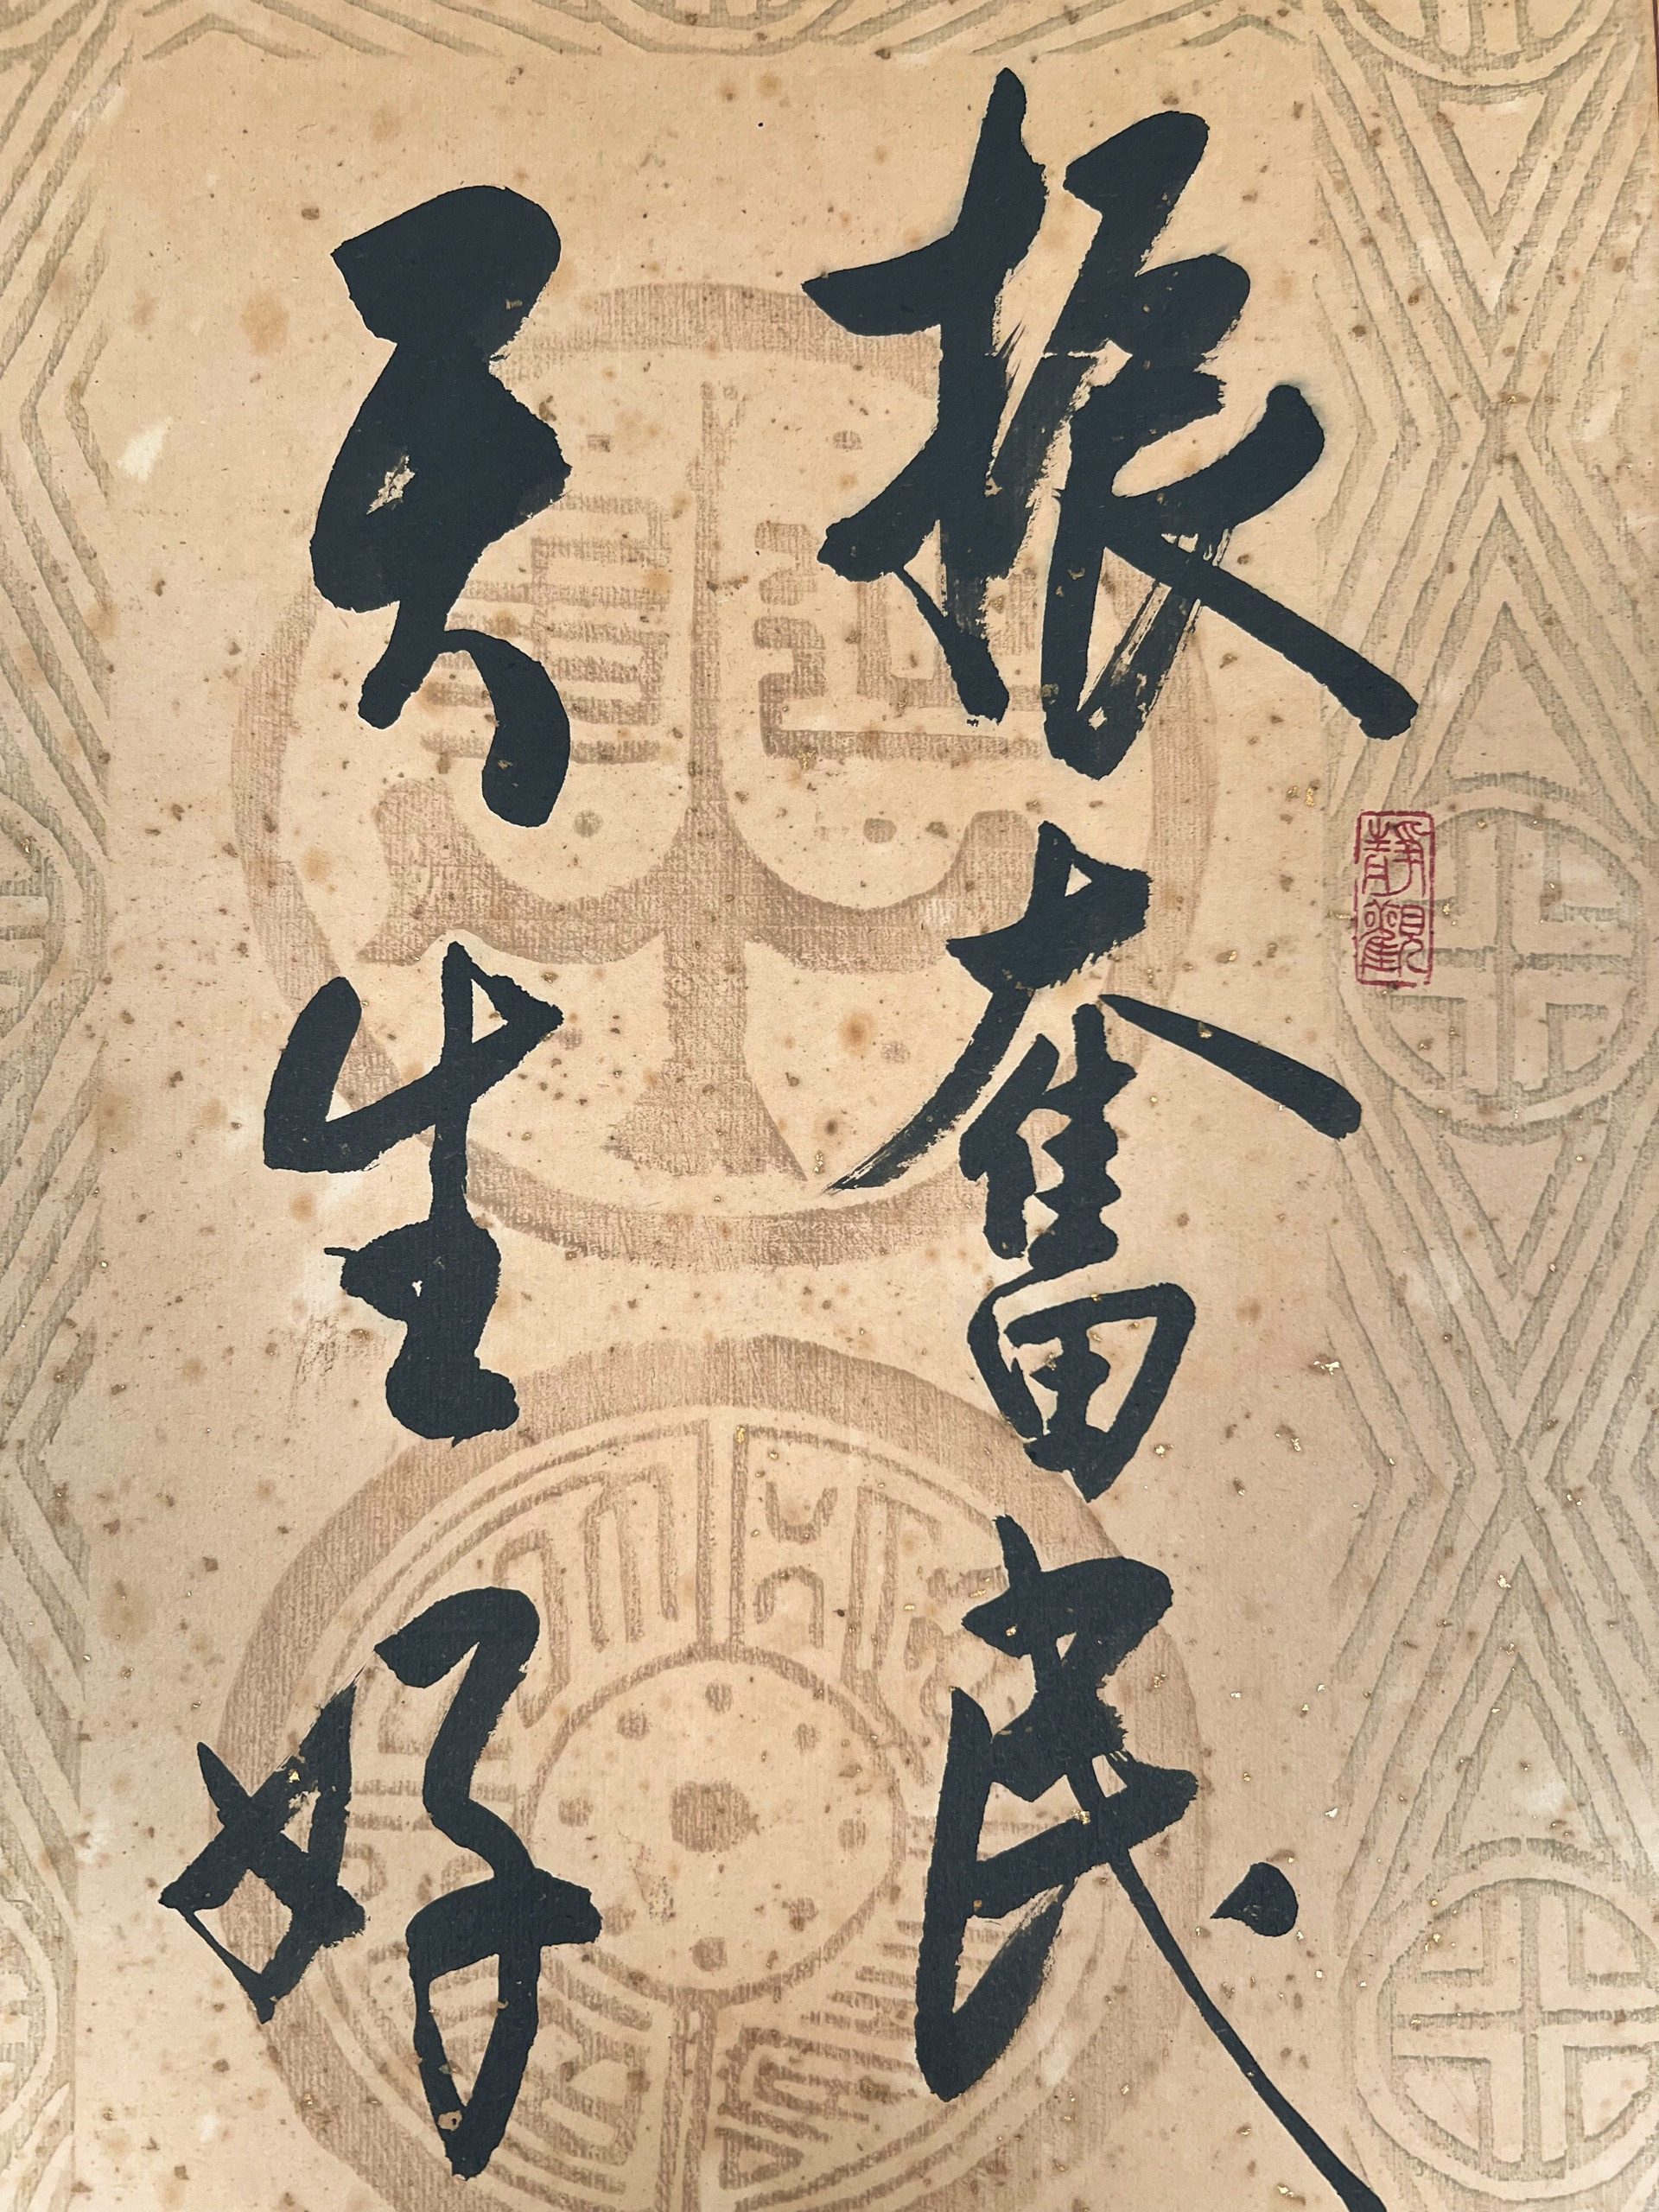 振奮民
天生好
靜觀